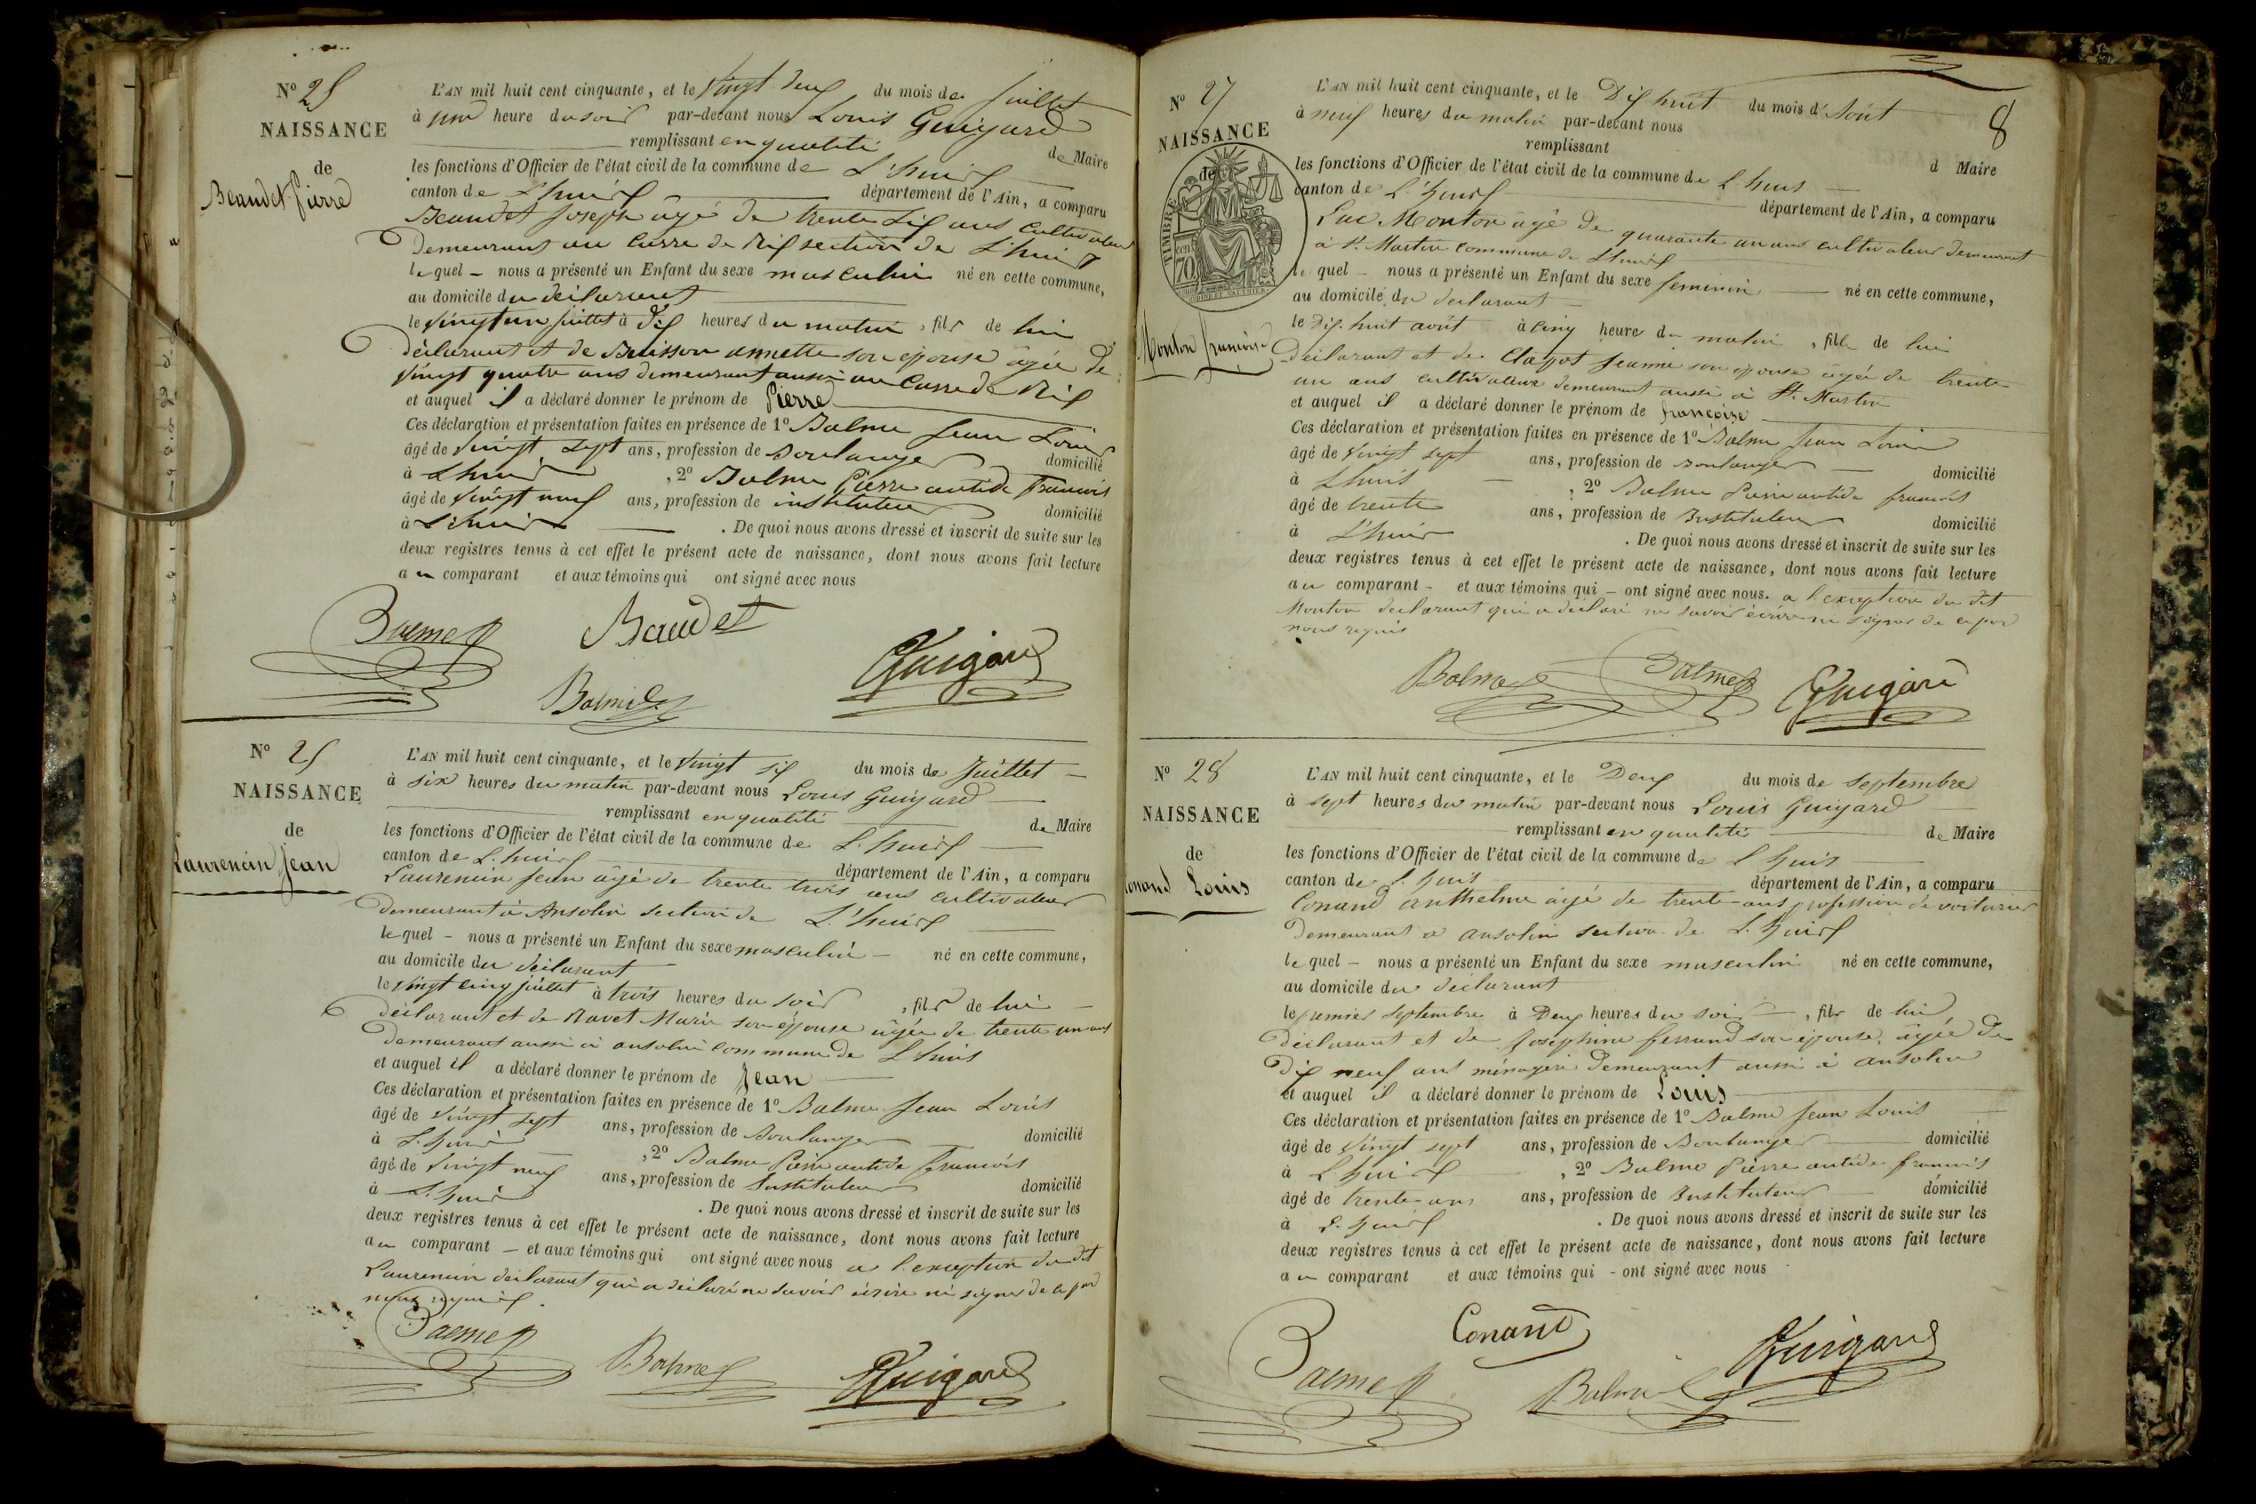 Nº 25
NAISSANCE
de
Beaudet Pierre
L'AN mil huit cent cinquante, et le vingt deux du mois de juillet
à une heure du soir par-devant nous Louis Guigard
remplissant en qualité de Maire
les fonctions d'Officier de l'état civil de la commune de L'huis
canton de L'huis département de l'Ain, a comparu
Beaudet Joseph âgé de trente six ans cultivateur
demeurant au section de L'huis
lequel nous a présenté un Enfant du sexe masculin né en cette commune,
au domicile du déclarant
le vingt un juillet à dix heures du matin, fils de lui
déclarant et de Buisson annette son épouse âgée de
vingt quatre ans demeurant aussi au
et auquel il a déclaré donner le prénom de Pierre
Ces déclaration et présentation faites en présence de 1º Balme Jean Louis
âgé de vingt sept ans, profession de Boulanger domicilié
à L'huis, 2º Balme Pierre antide françois
âgé de vingt neuf ans, profession de instituteur domicilié
à L'huis. De quoi nous avons dressé et inscrit de suite sur les
deux registres tenus à cet effet le présent acte de naissance, dont nous avons fait lecture
au comparant et aux témoins qui ont signé avec nous
Balme Baudet
Balme Guigard
Nº 25
NAISSANCE
de
Laurencin Jean
L'AN mil huit cent cinquante, et le vingt six du mois de Juillet
à six heures du matin par-devant nous Louis Guigard
remplissant en qualité de Maire
les fonctions d'Officier de l'état civil de la commune de L'huis
canton de L'huis département de l'Ain, a comparu
Laurencin Jean âgé de trente trois ans cultivateur
demeurant à Ansolin section de L'huis
lequel nous a présenté un Enfant du sexe masculin né en cette commune,
au domicile du déclarant
le vingt cinq juillet à trois heures du soir, fils de lui
déclarant et de Ravet Marie son épouse âgée de trente un ans
demeurant aussi à ansolin commune de L'huis
et auquel il a déclaré donner le prénom de Jean
Ces déclaration et présentation faites en présence de 1º Balme Jean Louis
âgé de vingt sept ans, profession de Boulanger domicilié
à L'huis, 2º Balme Pierre antide françois
âgé de vingt neuf ans, profession de Instituteur domicilié
à L'huis. De quoi nous avons dressé et inscrit de suite sur les
deux registres tenus à cet effet le présent acte de naissance, dont nous avons fait lecture
au comparant et aux témoins qui ont signé avec nous a l'exception du dit
Laurencin déclarant qui a déclaré ne savoir écrire ni signer de ce par
nous requis.
Balme Balme Guigard
8
Nº 27
NAISSANCE
de
TIMBRE
70
Monton françoise
L'AN mil huit cent cinquante, et le Dix huit du mois d'Aout
à neuf heures du matin par-devant nous
remplissant d Maire
les fonctions d'Officier de l'état civil de la commune de L'huis
canton de L'huis département de l'Ain, a comparu
Luc Monton âgé de quarante un ans cultivateur demeurant
à St Martin commune de L'huis
lequel nous a présenté un Enfant du sexe feminin né en cette commune,
au domicile du déclarant
le dix huit août à cinq heures du matin, fille de lui
déclarant et de Jeanne son épouse âgée de trente
un ans cultivateur demeurant aussi à St Martin
et auquel il a déclaré donner le prénom de françoise
Ces déclaration et présentation faites en présence de 1º Balme Jean Louis
âgé de vingt sept ans, profession de Boulanger domicilié
à L'huis, 2º Balme Pierre antide françois
âgé de trente ans, profession de Instituteur domicilié
à L'huis. De quoi nous avons dressé et inscrit de suite sur les
deux registres tenus à cet effet le présent acte de naissance, dont nous avons fait lecture
au comparant et aux témoins qui ont signé avec nous. a l'exception du dit
Monton déclarant qui a déclaré ne savoir écrire ni signer de ce par
nous requis
Balme Balme Guigard
Nº 28
NAISSANCE
de
Conand Louis
L'AN mil huit cent cinquante, et le Deux du mois de septembre
à sept heures du matin par-devant nous Louis Guigard
remplissant en qualité de Maire
les fonctions d'Officier de l'état civil de la commune de L'huis
canton de L'huis département de l'Ain, a comparu
Conand anthelme âgé de trente ans profession de voiturier
demeurant à ansolin section de L'huis
lequel nous a présenté un Enfant du sexe masculin né en cette commune,
au domicile du déclarant
le premier septembre à Deux heures du soir, fils de lui
déclarant et de Joséphine ferrand son épouse, âgée de
dix neuf ans ménagère demeurant aussi à ansolin
et auquel il a déclaré donner le prénom de Louis
Ces déclaration et présentation faites en présence de 1º Balme Jean Louis
âgé de vingt sept ans, profession de Boulanger domicilié
à L'huis, 2º Balme Pierre antide françois
âgé de trente ans, profession de Instituteur domicilié
à L'huis. De quoi nous avons dressé et inscrit de suite sur les
deux registres tenus à cet effet le présent acte de naissance, dont nous avons fait lecture
au comparant et aux témoins qui ont signé avec nous
Conand Guigard
Balme Balme